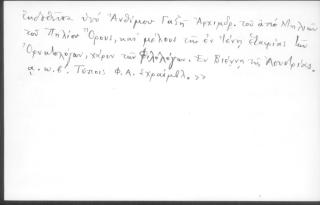 ἐκδοθεῖσα ὑπό Ἀνθίμου Γαζῆ Ἀρχιμδρ. τοῦ ἀπό Μηλιῶν
τοῦ Πηλίου Ὄρους, καί μέλους τῆς ἐν Ἰένῃ ἑταιρίας τῶν
Ὀρυκτολόγων, χάριν τῶν φιλολόγων. Ἐν Βιέννῃ τῆς Ἀουστρίας.
Τύποις Φ. Α. Σχραίμβλ. >>